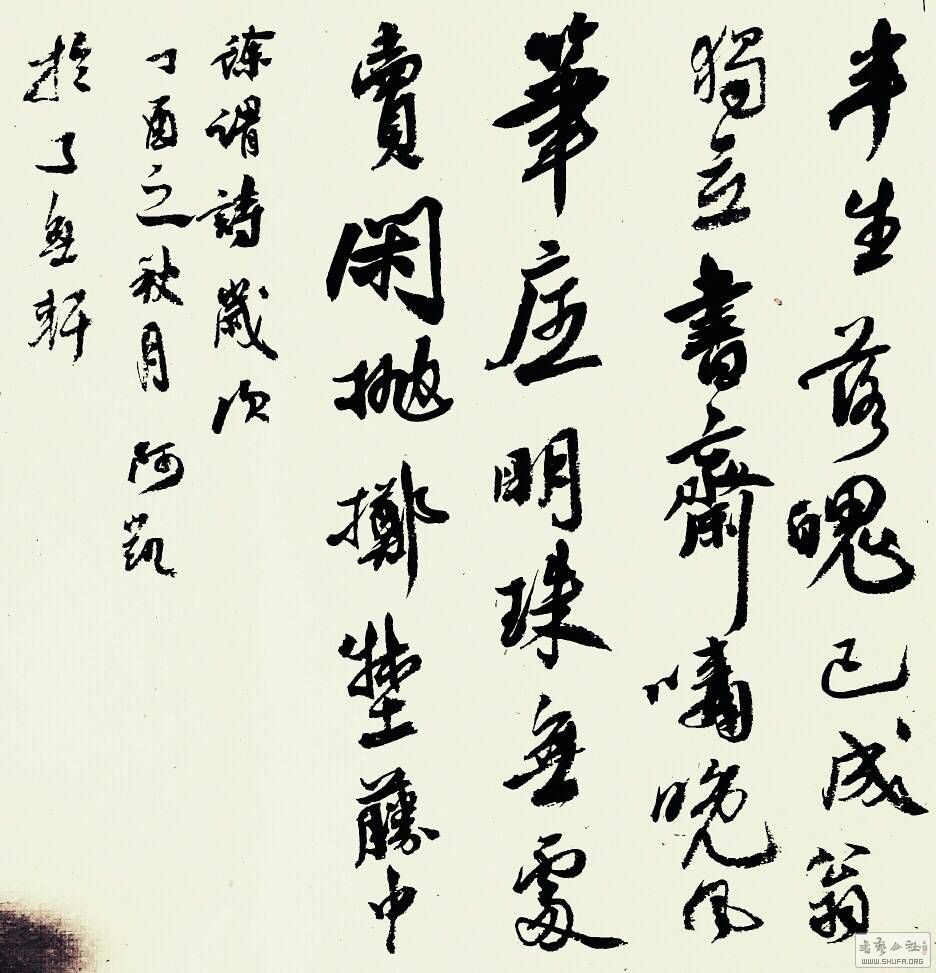 半生落魄已成翁
獨立書齋嘯晚風
筆底明珠無處
賣閑拋擲埜藤中
徐渭詩歲次
丁酉之秋月阿凱
於了無軒
書藝公社
WWW.SHUFA.ORG